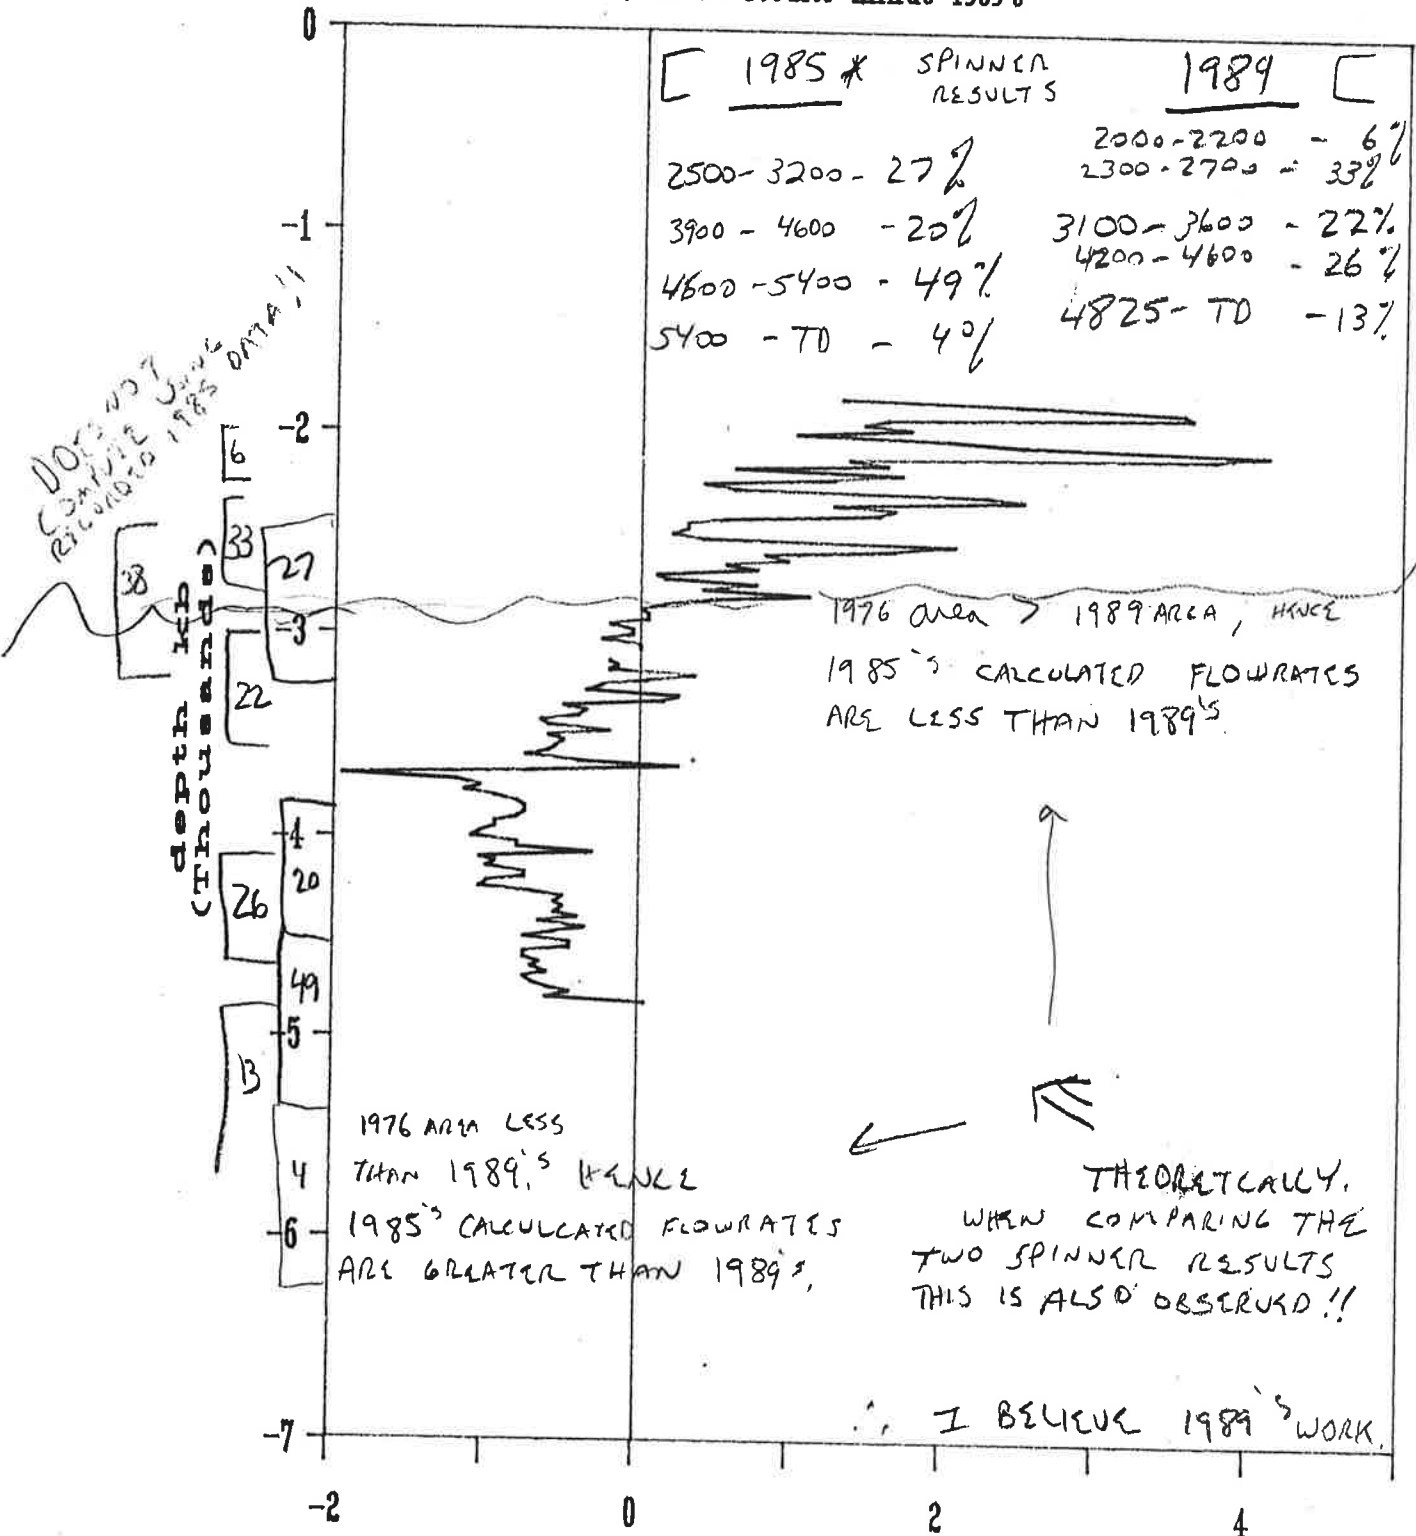 0
[ 1985 * SPINNER RESULTS 1989 [
2500 - 3200 - 27%
3900 - 4600 - 20%
4600 - 5400 - 49%
5400 - TD - 4%
2000 - 2200 - 6%
2300 - 2700 - 33%
3100 - 3600 - 22%
4200 - 4600 - 26%
4825 - TD - 13%
-1
-2
-3
-4
-5
-6
-7
DOES NOT
COMPUTE USING
RECORDED 1985 DATA!!
depth kb
(Thousands)
6
33
27
38
22
20
26
49
13
4
1976 area > 1989 AREA, HENCE
1985's CALCULATED FLOWRATES
ARE LESS THAN 1989's.
1976 AREA LESS
THAN 1989's HENCE
1985's CALCULCATED FLOWRATES
ARE GREATER THAN 1989's.
THEORETCALLY.
WHEN COMPARING THE
TWO SPINNER RESULTS
THIS IS ALSO OBSERVED!!
∴ I BELIEVE 1989's WORK.
-2
0
2
4